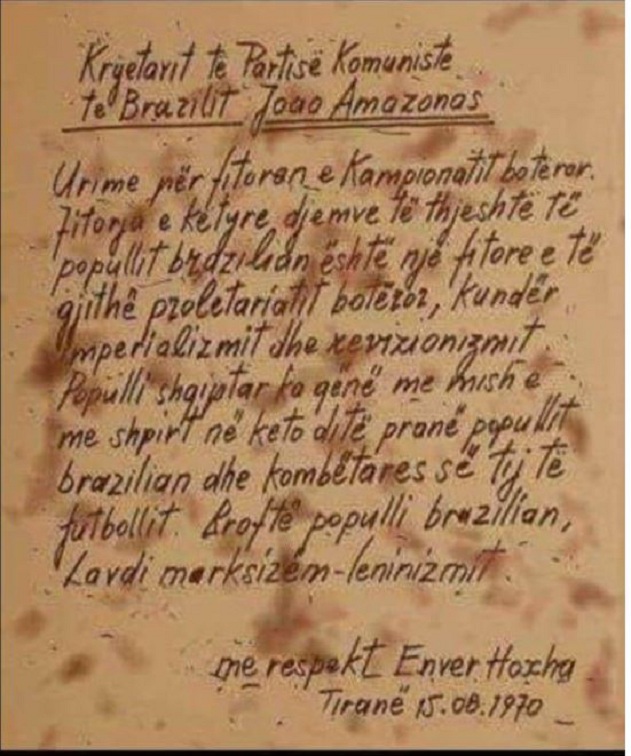 Kryetarit të Partisë Komuniste
te Brazilit Joao Amazonas
Urime për fitoren e Kampionatit botëror.
Fitorja e këtyre djemve të thjeshtë të
popullit brazilian është një fitore e të
gjithë proletariatit botëror, kundër
imperializmit dhe revizionizmit.
Populli shqiptar ka qënë me mish e
me shpirt në keto ditë pranë popullit
brazilian dhe kombëtares së tij të
futbollit. Rroftë populli brazilian,
Lavdi marksizëm-leninizmit.
me respekt Enver Hoxha
Tiranë 15.08.1970